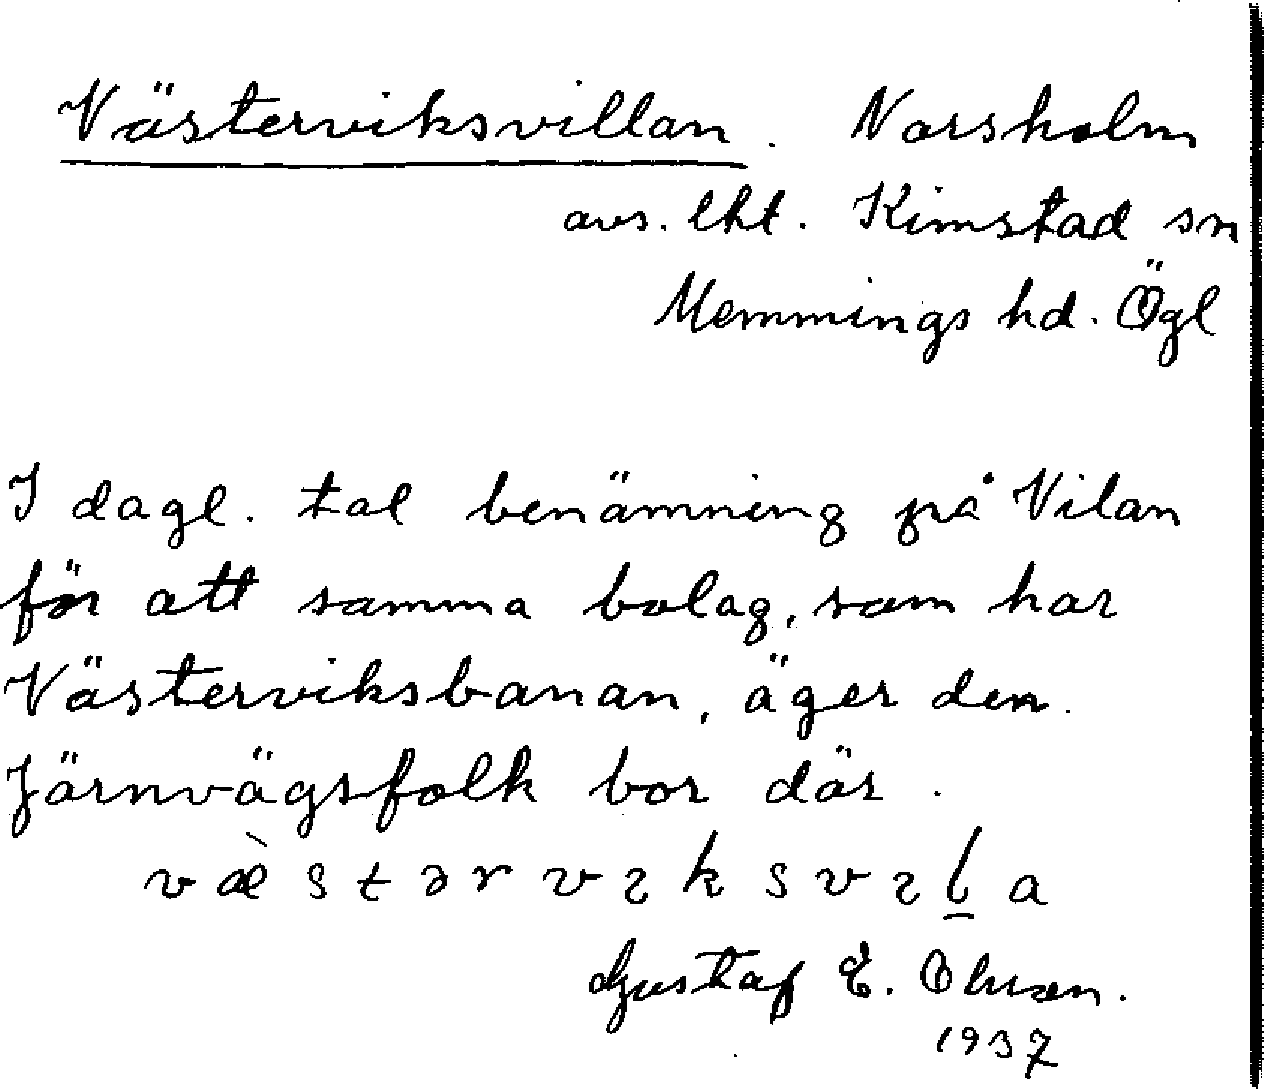 Västerviksvillan. Norsholm
avs. lht. Kimstad sn
Memmings hd. Ögl
I dagl. tal benämning på Vilan
för att samma bolag, som har
Västerviksbanan, äger den.
Järnvägsfolk bor där.
væ̀stərvɿksvɿl̲a
Gustaf E. Olsson.
1937